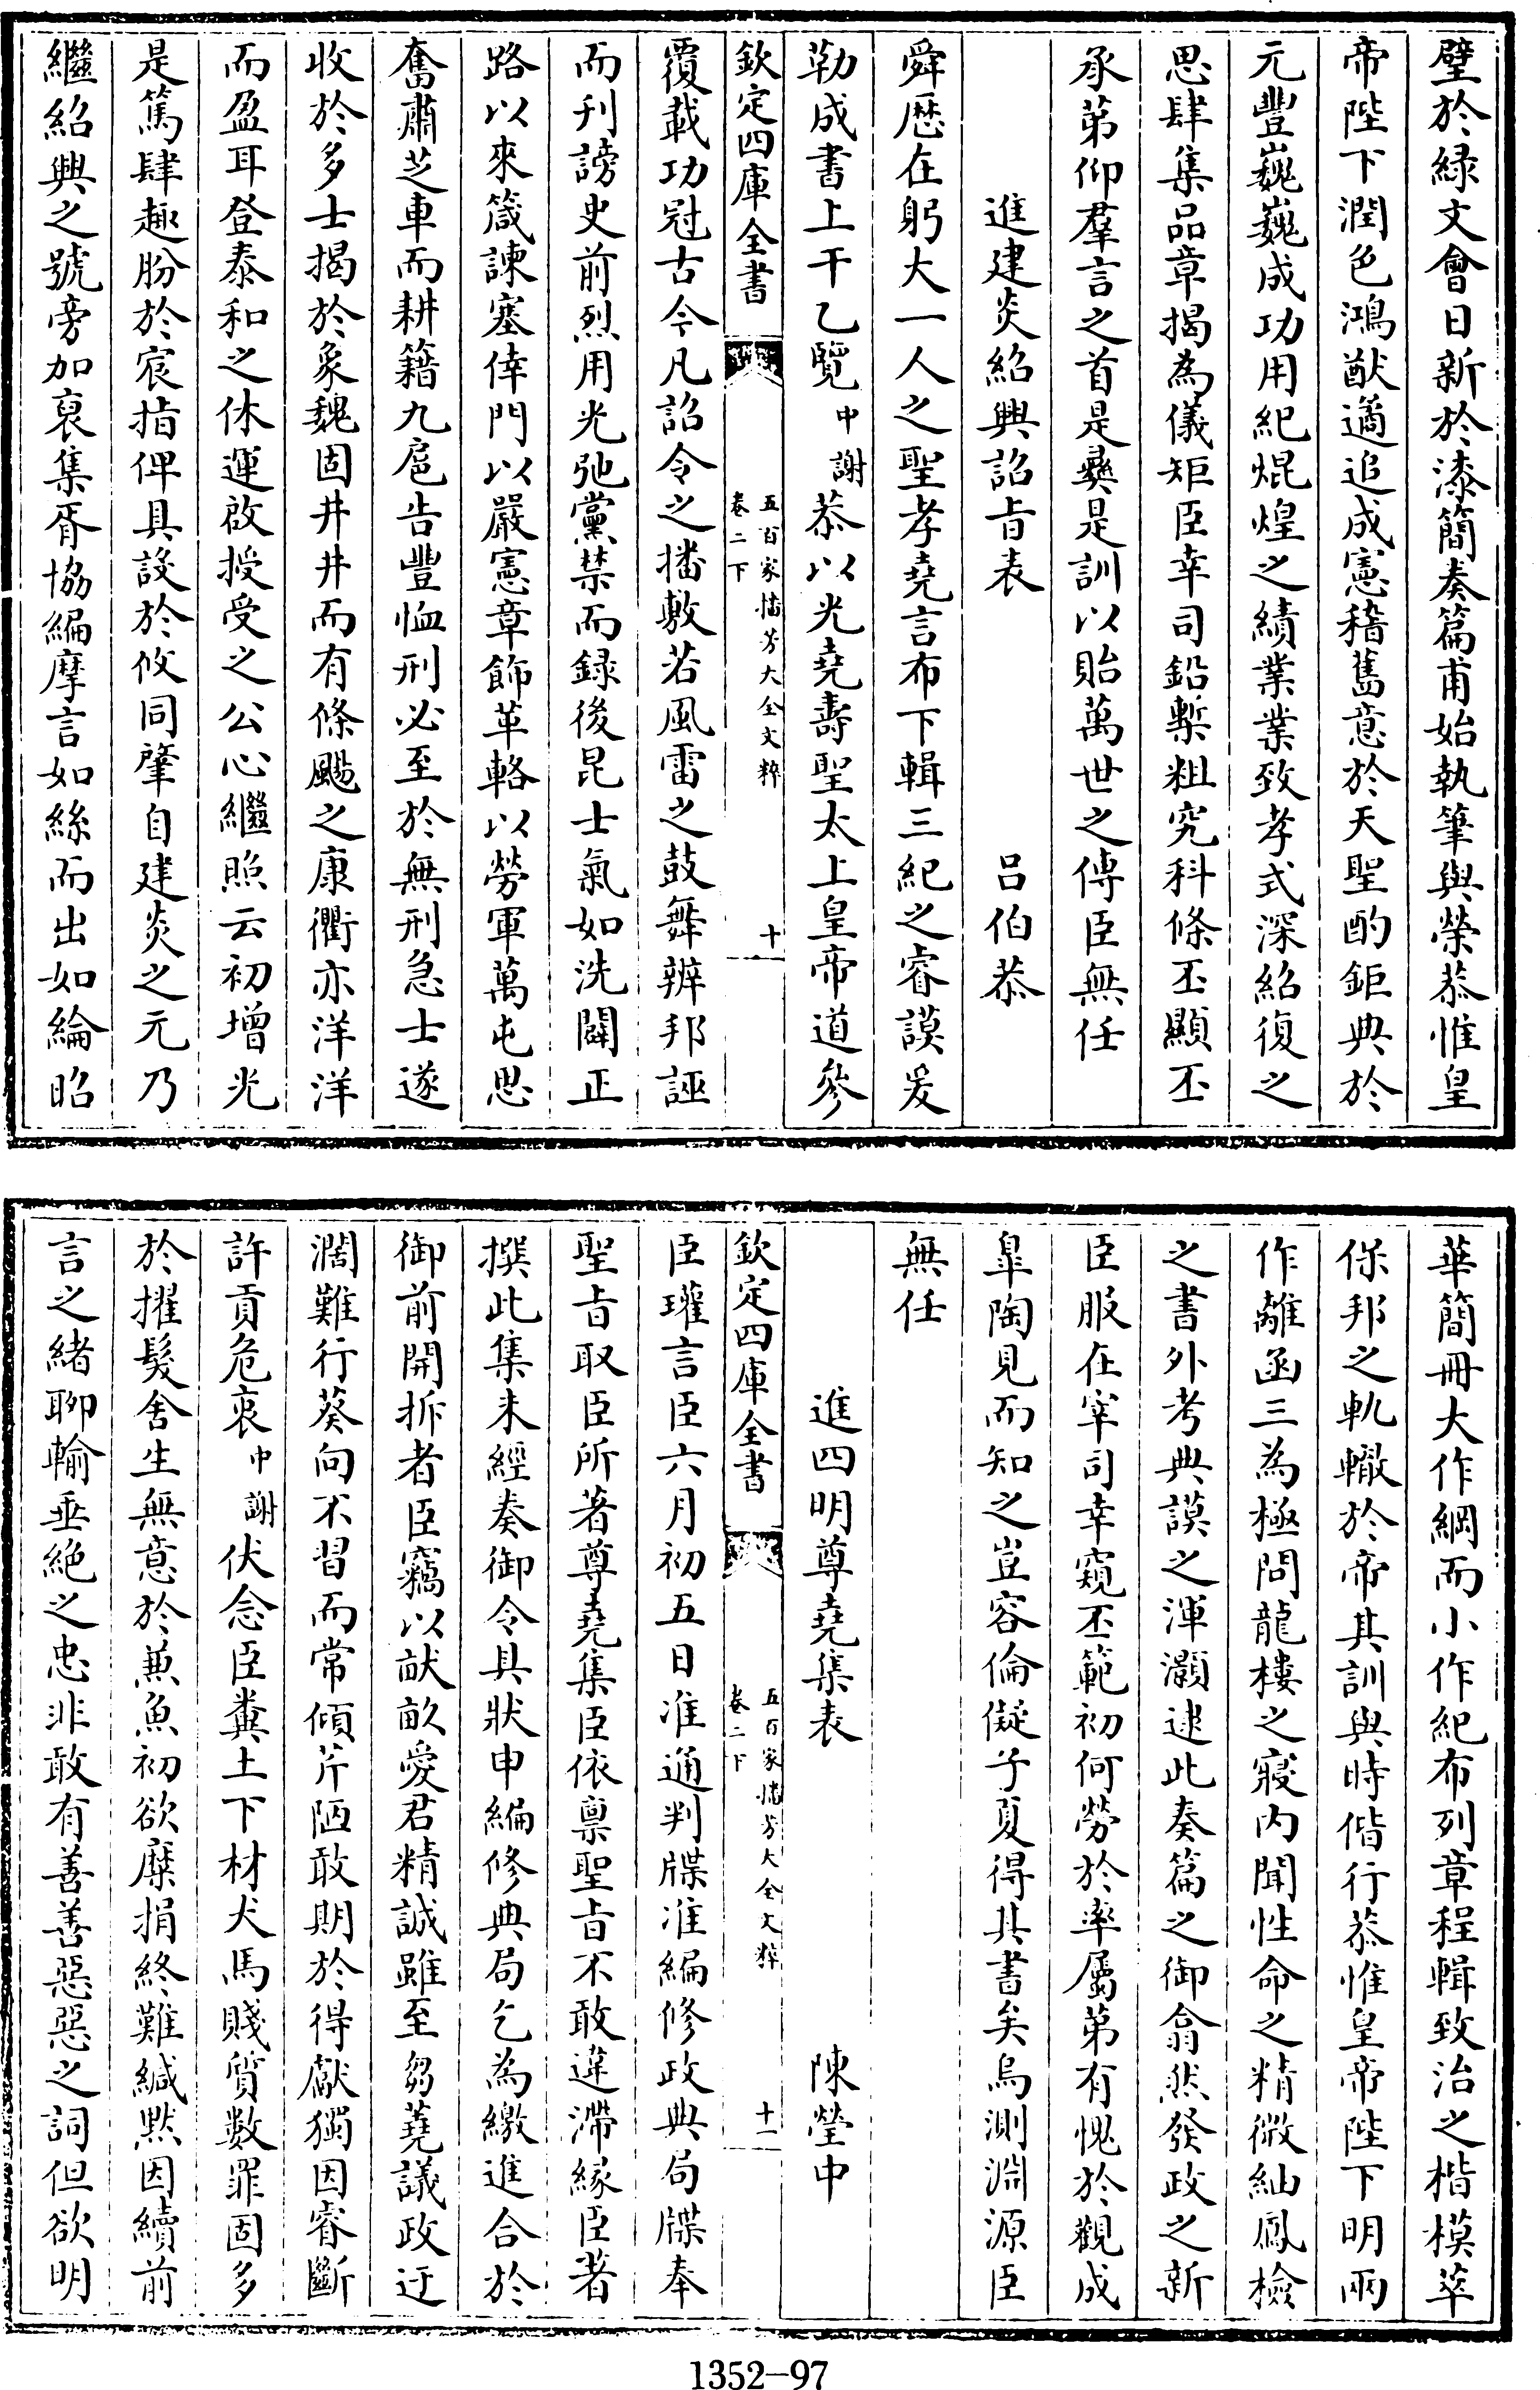 璧於緑文會日新於漆簡奏篇甫始執筆與榮恭惟皇
帝陛下潤色鴻猷遹追成憲稽舊意於天聖酌鉅典於
元豐巍巍成功用紀焜煌之績業業致孝式深紹復之
思肆集品章揭為儀矩臣幸司鉛槧粗究科條丕顯丕
承第仰羣言之首是彛是訓以貽萬世之傳臣無任
進建炎紹興詔旨表　呂伯恭
舜歴在躬大一人之聖孝堯言布下輯三紀之睿謨爰
勒成書上干乙覽中謝恭以光堯壽聖太上皇帝道參
欽定四庫全書　五百家播芳大全文粹　卷二下　十
覆載功冠古今凡詔令之播敷若風雷之鼓舞辨邦誣
而刋謗史前烈用光弛黨禁而録後昆士氣如洗闢正
路以來箴諫塞倖門以嚴憲章飾革輅以勞軍萬屯思
奮肅芝車而耕籍九扈告豐恤刑必至於無刑急士遂
收於多士揭於象魏固井井而有條颺之康衢亦洋洋
而盈耳登泰和之休運啟授受之公心繼照云初增光
是篤肆趣肦於宸指俾具設於攸同肇自建炎之元乃
繼紹興之號旁加裒集胥協編摩言如絲而出如綸昭
華簡冊大作綱而小作紀布列章程輯致治之楷模萃
保邦之軌轍於帝其訓與時偕行恭惟皇帝陛下明兩
作離函三為極問龍樓之寢内聞性命之精微紬鳳檢
之書外考典謨之渾灝逮此奏篇之御翕然發政之新
臣服在宰司幸窺丕範初何勞於率屬第有愧於觀成
臯陶見而知之豈容倫儗子夏得其書矣烏測淵源臣
無任
進四明尊堯集表　陳瑩中
欽定四庫全書　五百家播芳大全文粹　卷二下　十一
臣瓘言臣六月初五日准通判牒准編修政典局牒奉
聖旨取臣所著尊堯集臣依禀聖旨不敢違滯縁臣著
撰此集未經奏御令具狀申編修典局乞為繳進合於
御前開拆者臣竊以畎畝愛君精誠雖至芻蕘議政迂
濶難行葵向不習而常傾芹陋敢期於得獻獨因睿斷
許貢危衷中謝伏念臣糞土下材犬馬賤質數罪固多
於擢髮舍生無意於兼魚初欲糜捐終難緘黙因續前
言之緒聊輸垂絶之忠非敢有善善惡惡之詞但欲明
1352-97